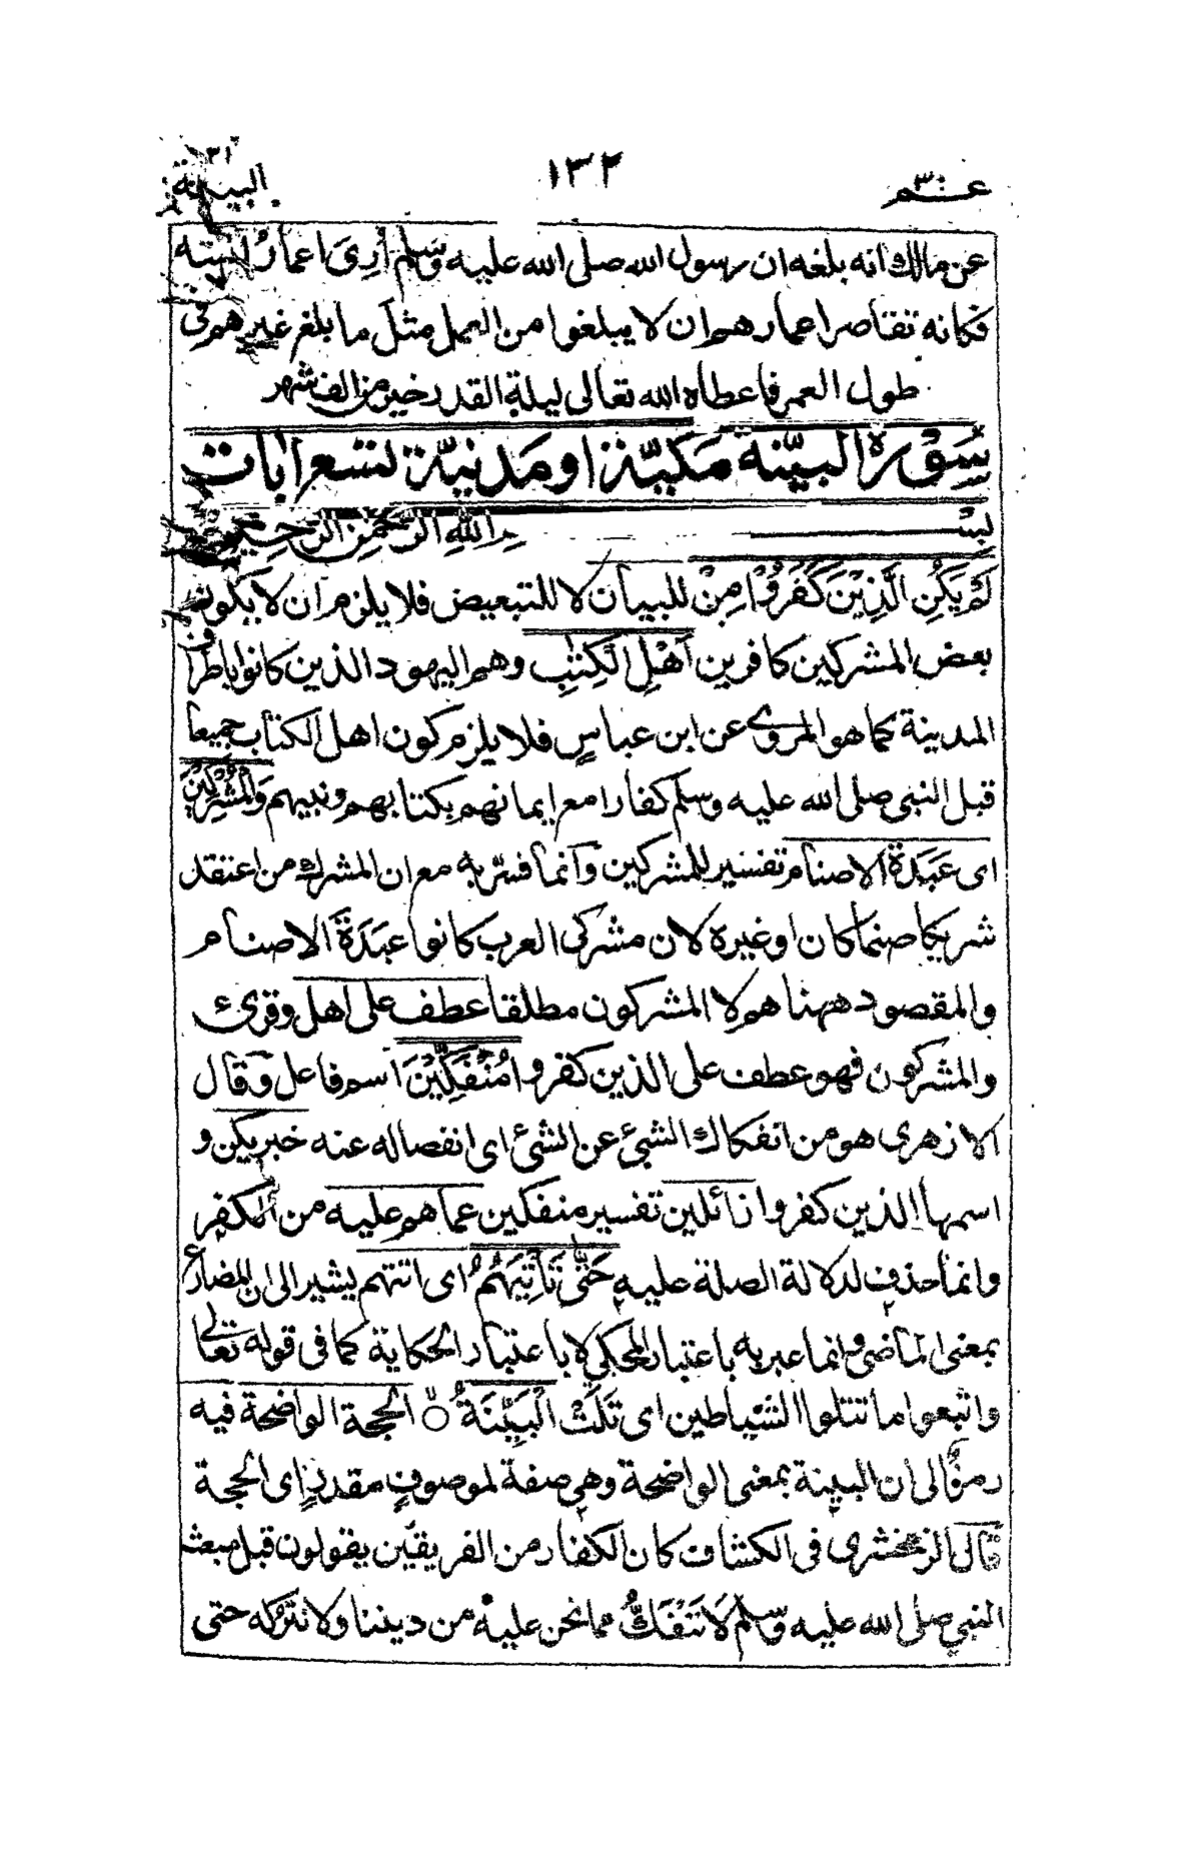 عـم ٣٠
١٣٢
البينة
عن مالك انه بلغه ان رسول الله صلى الله عليه وسلم اُرِىَ اعمارُ
فكانه تقاصر اعمارهم ان لا يبلغوا من العمل مثل ما بلغ غيرهم فى
طول العمر فاعطاه الله تعالى ليلة القدر خير من الف شهر
سُوْرة البيّنة مكيّة او مدنيّة تسع اٰيات
بِسْــــــمِ اللهِ الرَّحْمٰنِ الرَّحِيْمِ
لَمْ يَكُنِ الَّذِيْنَ كَفَرُوْا مِنْ للبيان لا للتبعيض فلا يلزم ان لا يكون
بعض المشركين كافرين اَهْلِ الْكِتٰبِ وهم اليهود الذين كانوا باطراف
المدينة كما هو المروى عن ابن عباسٍ فلا يلزم كون اهل الكتاب جميعا
قبل النبى صلى الله عليه وسلم كفارا مع ايمانهم بكتابهم ونبيهم وَالْمُشْرِكِيْنَ
اى عَبَدَة الاصنام تفسير للمشركين وانما فسّر به مع ان المشرك من اعتقد
شريكا صنما كان او غيره لان مشركى العرب كانوا عَبَدَةَ الاصنام
والمقصود ههنا هم لا المشركون مطلقا عطف على اهل وقرئ
والمشركون فهو عطف على الذين كفروا مُنْفَكِّيْنَ اسم فاعل وقال
الازهرى هو من انفكاك الشئ عن الشئ اى انفصاله عنه خبر يكن و
اسمها الذين كفروا زائلين تفسير منفكين عما هم عليه من الكفر
وانما حذف لدلالة الصلة عليه حَتّٰى تَأْتِيَهُمُ اى اتتهم يشير الى ان المضارع
بمعنى الماضى وانما عبر به باعتبار المحكى لا باعتبار الحكاية كما فى قوله تعالى
واتبعوا ما تتلوا الشياطين اى تَلَتْ الْبَيِّنَةُ ○ الحجة الواضحة فيه
رمزٌ الى ان البينة بمعنى الواضحة وهى صفة لموصوفٍ مقدرٍ اى الحجة
قال الزمخشرى فى الكشاف كان الكفار من الفريقين يقولون قبل مبعث
النبي صلى الله عليه وسلم لا نَنْفَكُّ مما نحن عليه من ديننا ولا نتركه حتى